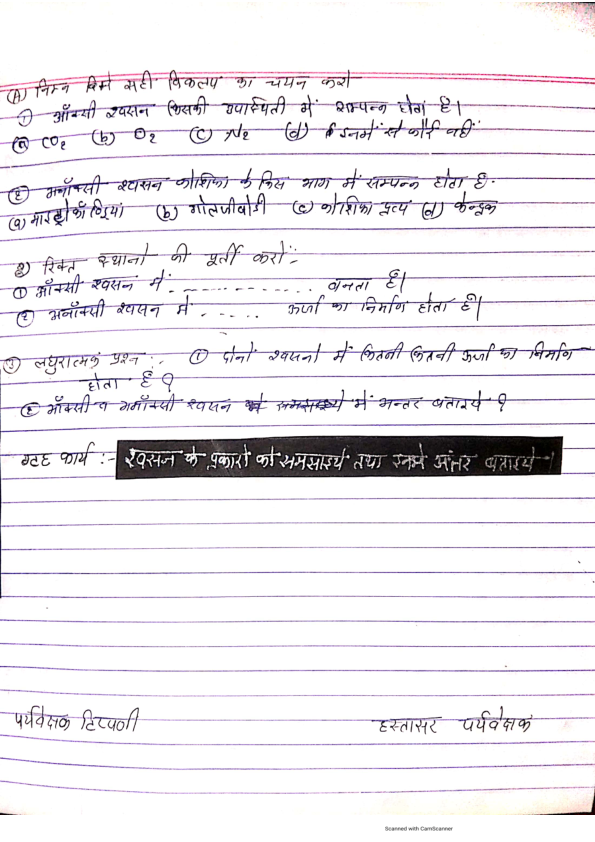 (A) निम्न में सही विकल्प का चयन करो
① ऑक्सी श्वसन किसकी उपस्थिती में सम्पन्न होता है।
(a) CO₂ (b) O₂ (c) N₂ (d) इनमें से कोई नहीं
② अनॉक्सी श्वसन कोशिका के किस भाग में सम्पन्न होता है.
(a) माइट्रोकॉण्ड्रियां (b) गोल्जीबोडी (c) कोशिका द्रव्य (d) केन्द्रक
2) रिक्त स्थानो की पूर्ती करों:-
① ऑक्सी श्वसन में. - - - - - - - - - - - बनता है|
② अनॉक्सी श्वसन में - . . . . ऊर्जा का निर्माण होता है|
③ लघुरात्मक प्रश्न :- ① दोनो श्वसनो में कितनी कितनी ऊर्जा का निर्माण
होता है ?
② ऑक्सी व अनॉक्सी श्वसन में अन्तर बताइये ?
ग्रह कार्य :- श्वसन के प्रकारो को समझाइये तथा इनमे अंतर बताइये।
पर्यवेक्षक टिप्पणी
हस्ताक्षर पर्यवेक्षक
Scanned with CamScanner